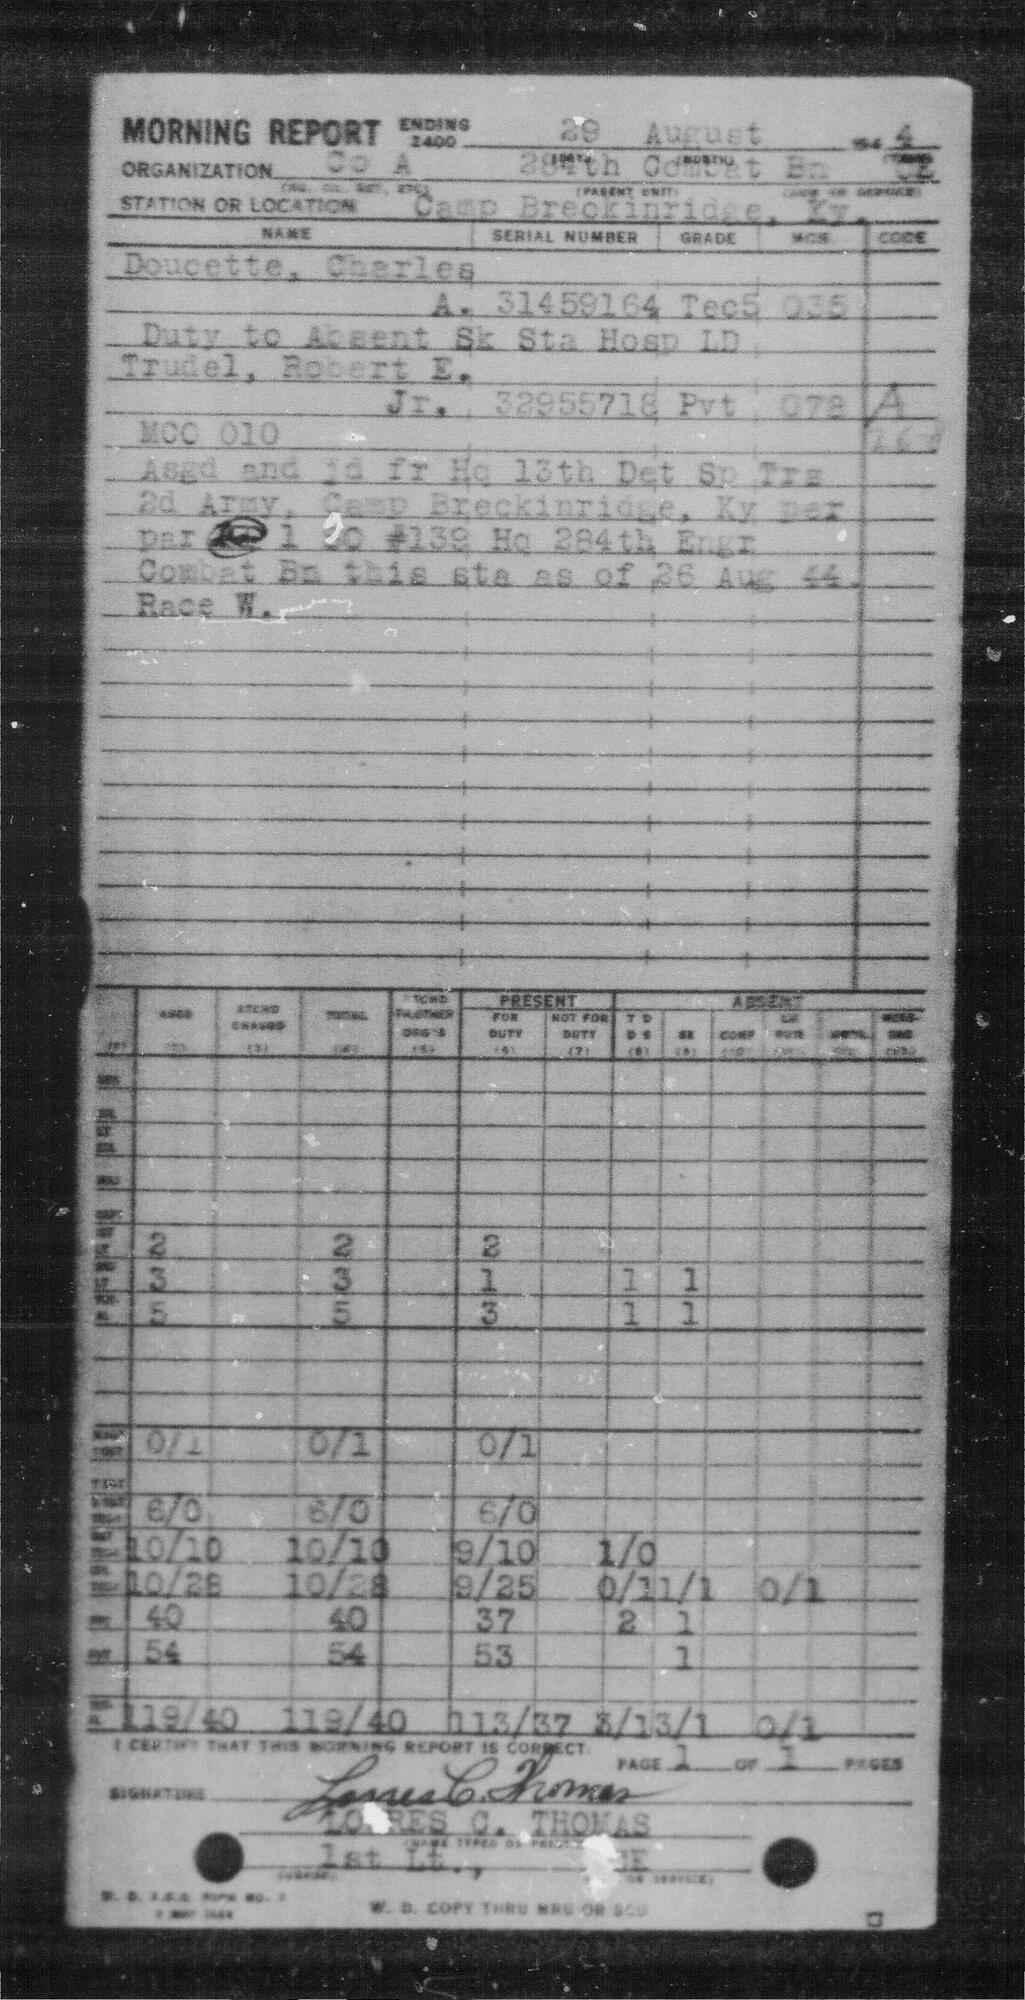 MORNING REPORT ENDING 2400 29 August 194 4
ORGANIZATION Co A 284th Combat Bn CE
(PARENT UNIT)
STATION OR LOCATION Camp Breckinridge, Ky.
NAME SERIAL NUMBER GRADE MOS CODE
Doucette, Charles
A. 31459164 Tec5 035
Duty to Absent Sk Sta Hosp LD
Trudel, Robert E.
Jr. 32955718 Pvt 078 A
MCO 010
Asgd and jd fr Hq 13th Det Sp Trs
2d Army, Camp Breckinridge, Ky per
par 1 SO #139 Hq 284th Engr
Combat Bn this sta as of 26 Aug 44.
Race W.
PRESENT ABSENT
ASGD ATCHD TOTAL ATCHD FOR NOT FOR T D
DUTY DUTY D S SK CONF
(3) (5) (6) (7) (8)
2 2 2
3 3 1 1 1
5 5 3 1 1
0/1 0/1 0/1
6/0 6/0 6/0
10/10 10/10 9/10 1/0
10/28 10/28 9/25 0/1 1/1 0/1
40 40 37 2 1
54 54 53 1
119/40 119/40 113/37 3/1 3/1 0/1
I CERTIFY THAT THIS MORNING REPORT IS CORRECT.
PAGE 1 OF 1 PAGES
SIGNATURE Lorres C. Thomas
LORRES C. THOMAS
(NAME TYPED OR PRINTED)
1st Lt., CE
W. D. A.G.O. FORM NO. 1
W. D. COPY THRU MRU OR SCU